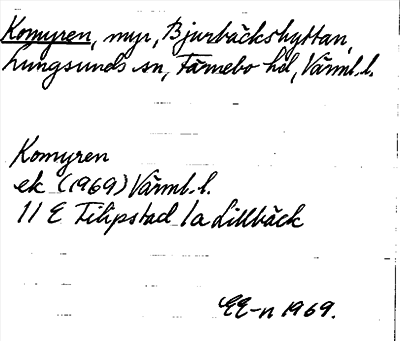 Komyren, myr, Bjurbäckshyttan,
Lungsunds sn, Färnebo hd, Värml. l.
Komyren
ek (1969) Värml. l.
11 E Filipstad 1a Lillbäck
EE-n 1969.